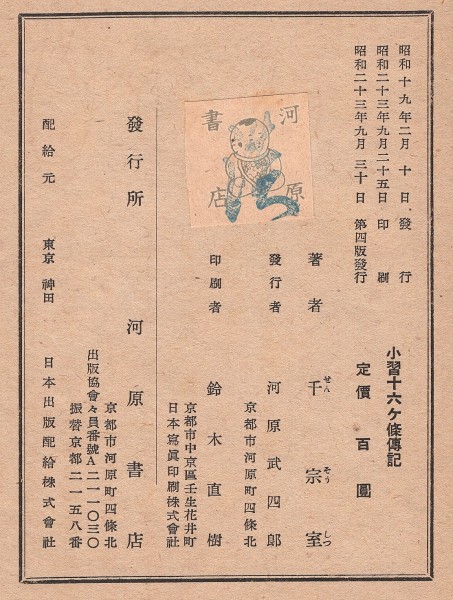 昭和十九年二月 十 日 發 行
昭和二十三年九月二十五日 印 刷
昭和二十三年九月 三十 日 第四版發行
小習十六ケ條傳記
定價 百 圓
著者 千宗室
せん そう しつ
發行者 河原武四郎
京都市河原町四條北
印刷者 鈴木直樹
京都市中京區壬生花井町
日本寫眞印刷株式會社
河原
書店
發行所 河原書店
京都市河原町四條北
出版協會々員番號A二一一〇三〇
振替京都二一五八番
配給元 東京 神田 日本出版配給株式會社